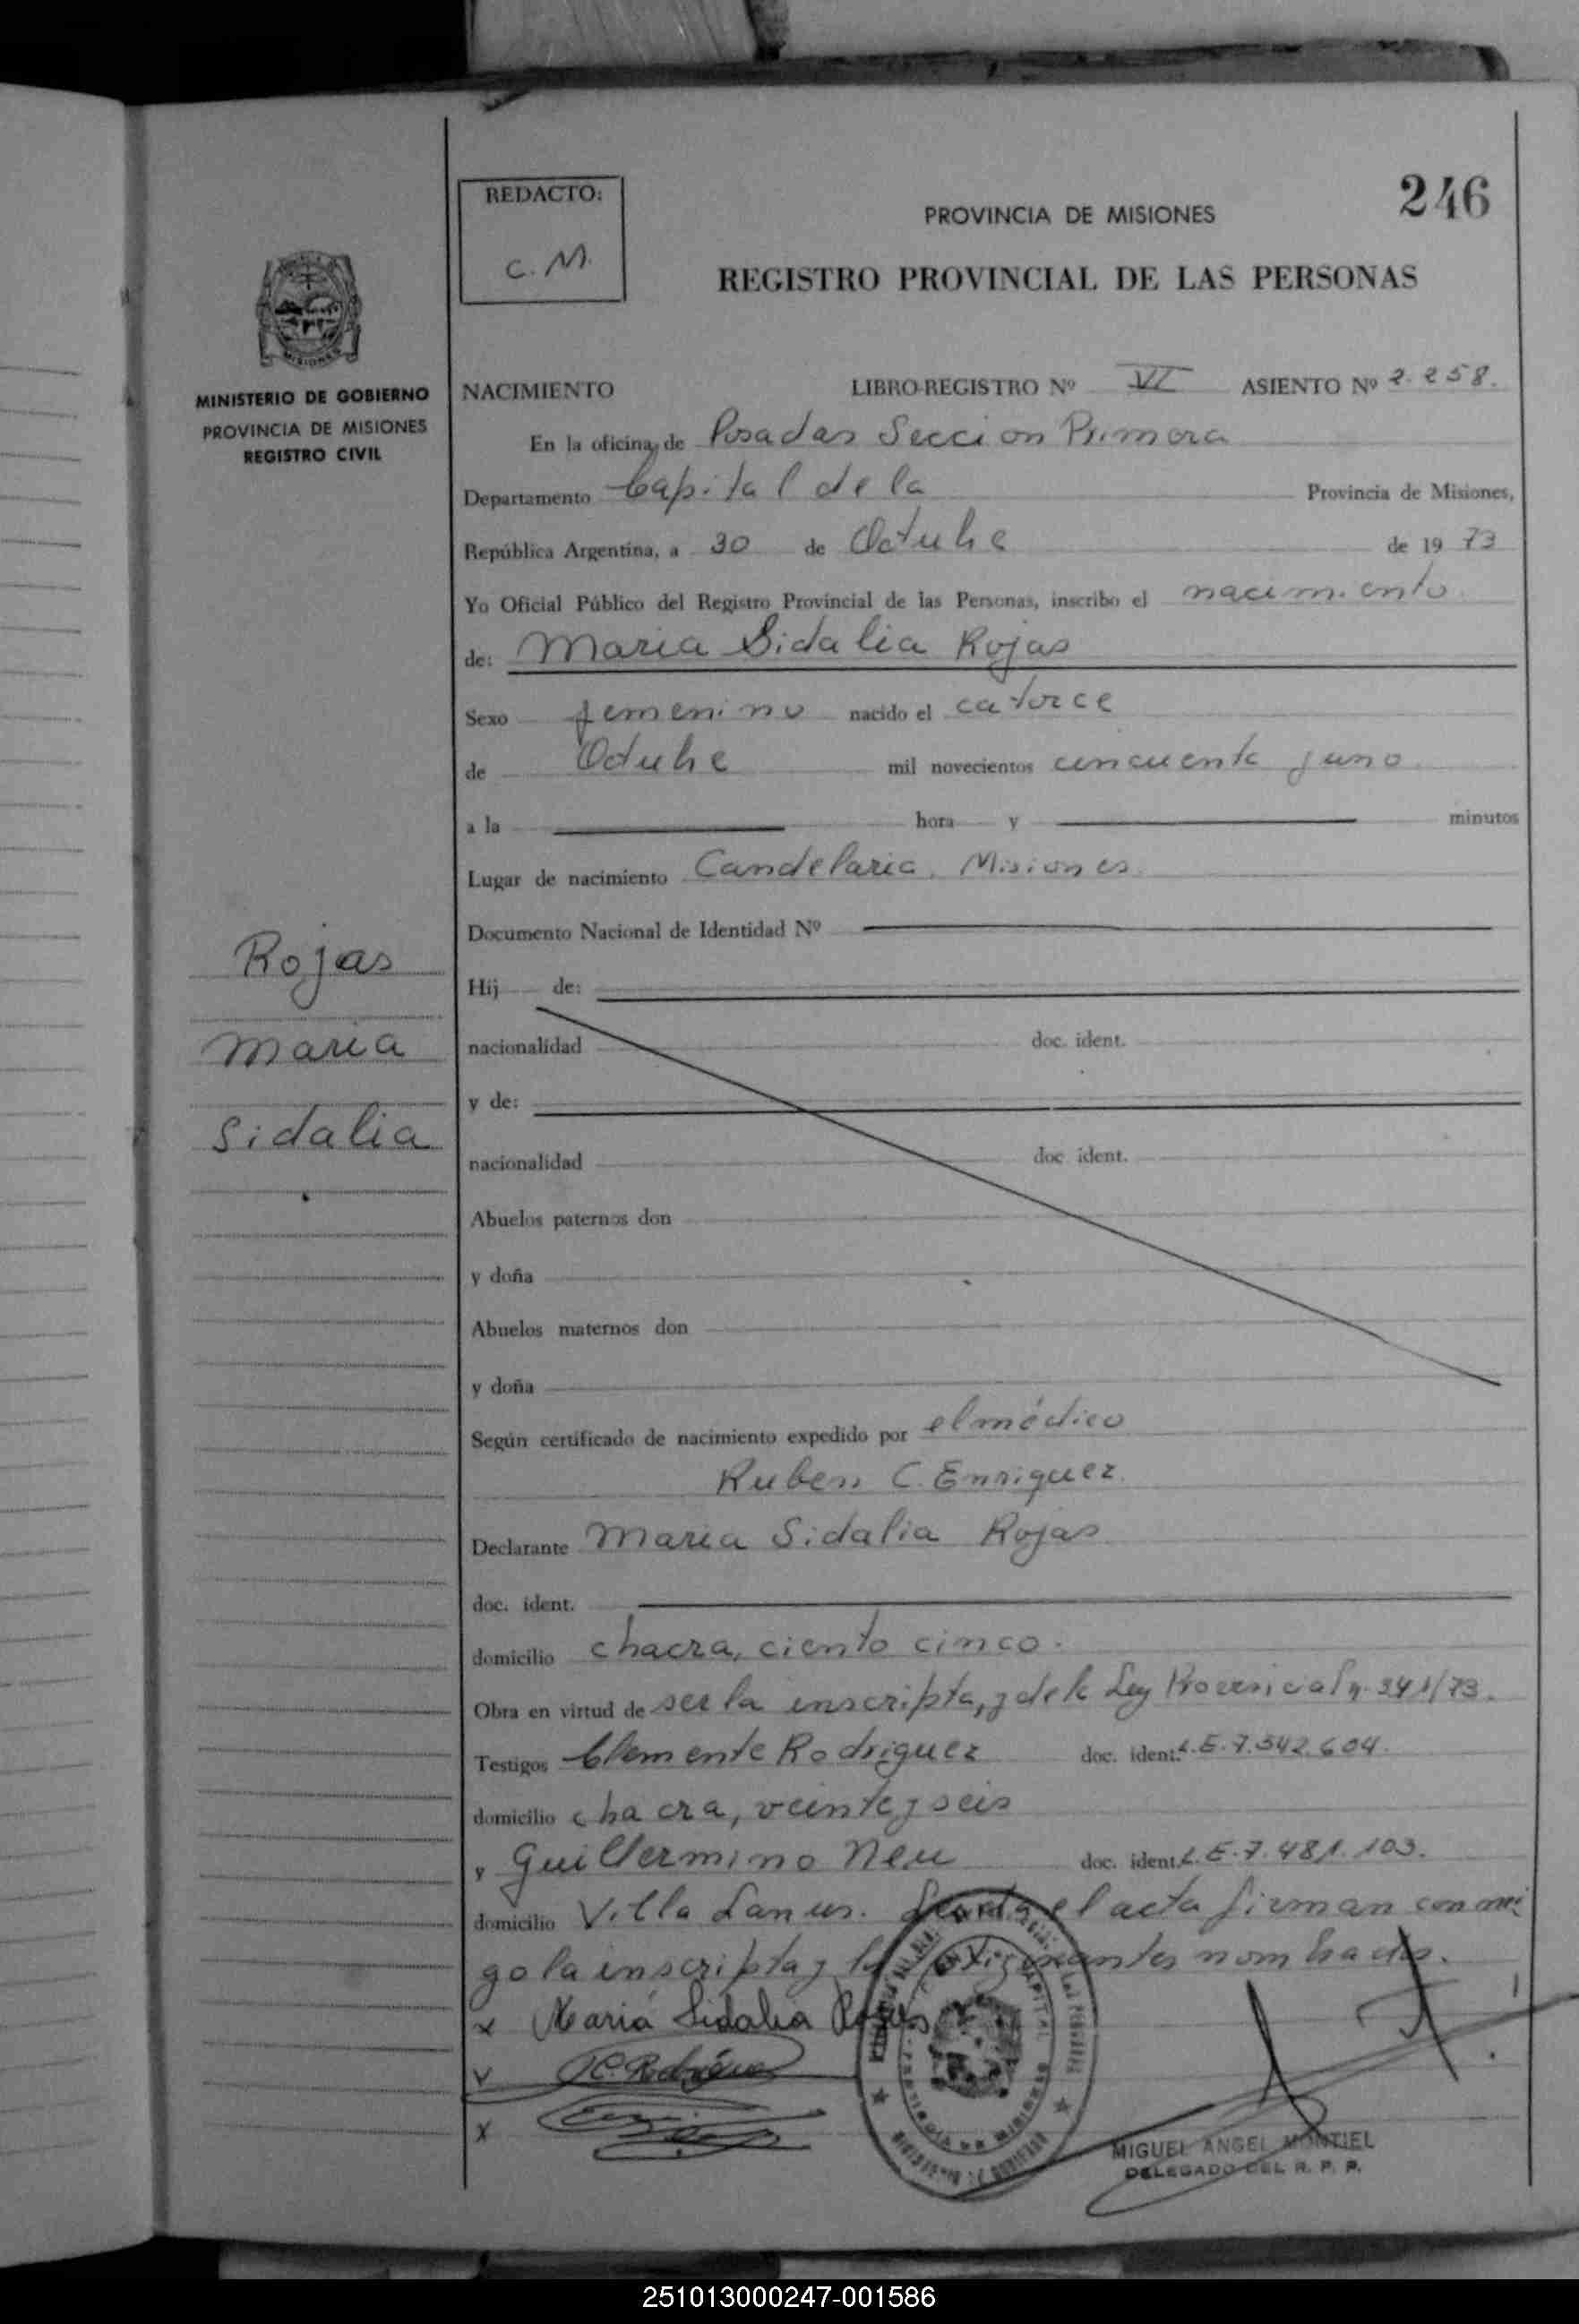 REDACTO:
C. M.
246
PROVINCIA DE MISIONES
REGISTRO PROVINCIAL DE LAS PERSONAS
MISIONES
MINISTERIO DE GOBIERNO
PROVINCIA DE MISIONES
REGISTRO CIVIL
NACIMIENTO LIBRO-REGISTRO Nº VI ASIENTO Nº 2.258.
En la oficina de Posadas Seccion Primera
Departamento Capital de la Provincia de Misiones,
República Argentina, a 30 de Octubre de 1973
Yo Oficial Público del Registro Provincial de las Personas, inscribo el nacimiento
de: Maria Sidalia Rojas
Sexo femenino nacido el catorce
de Octubre mil novecientos cincuenta y uno
a la hora y minutos
Lugar de nacimiento Candelaria, Misiones
Documento Nacional de Identidad Nº
Rojas
Maria
Sidalia
Hij de:
nacionalidad doc. ident.
y de:
nacionalidad doc ident.
Abuelos paternos don
y doña
Abuelos maternos don
y doña
Según certificado de nacimiento expedido por el médico
Ruben C. Enriquez.
Declarante Maria Sidalia Rojas
doc. ident.
domicilio chacra, ciento cinco.
Obra en virtud de ser la inscripta, y de la Ley Provincial n. 341/73.
Testigos Clemente Rodriguez doc. ident. L.E. 7.542.604.
domicilio chacra, veinte y seis
y Guillermino Neu doc. ident. L.E. 7.481.103.
domicilio Villa Lanus. Leida el acta firman conmi
go la inscripta y los nombrados.
x Maria Sidalia Rojas
v C. Rodriguez
x
MIGUEL ANGEL MONTIEL
DELEGADO DEL R. P. P.
251013000247-001586